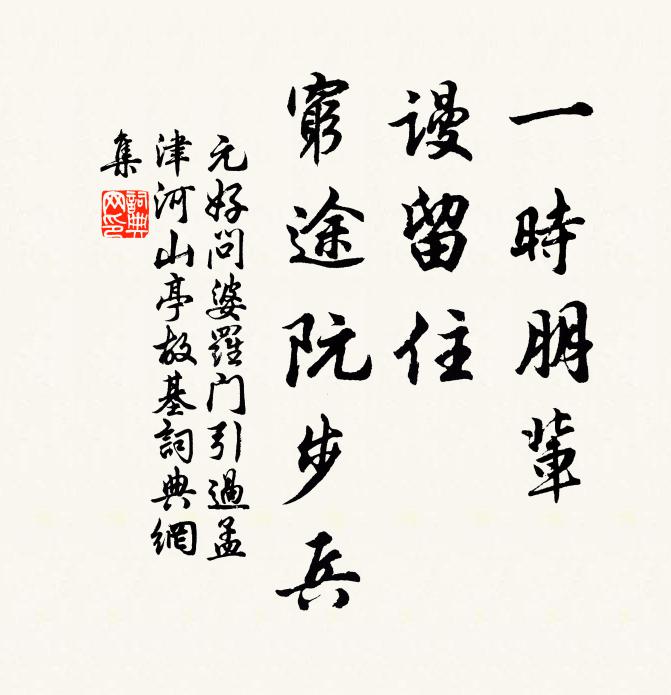 一時朋輩
謾留住
窮途阮步兵
元好問婆羅門引過孟
津河山亭故基詞典網
集
詞典網印